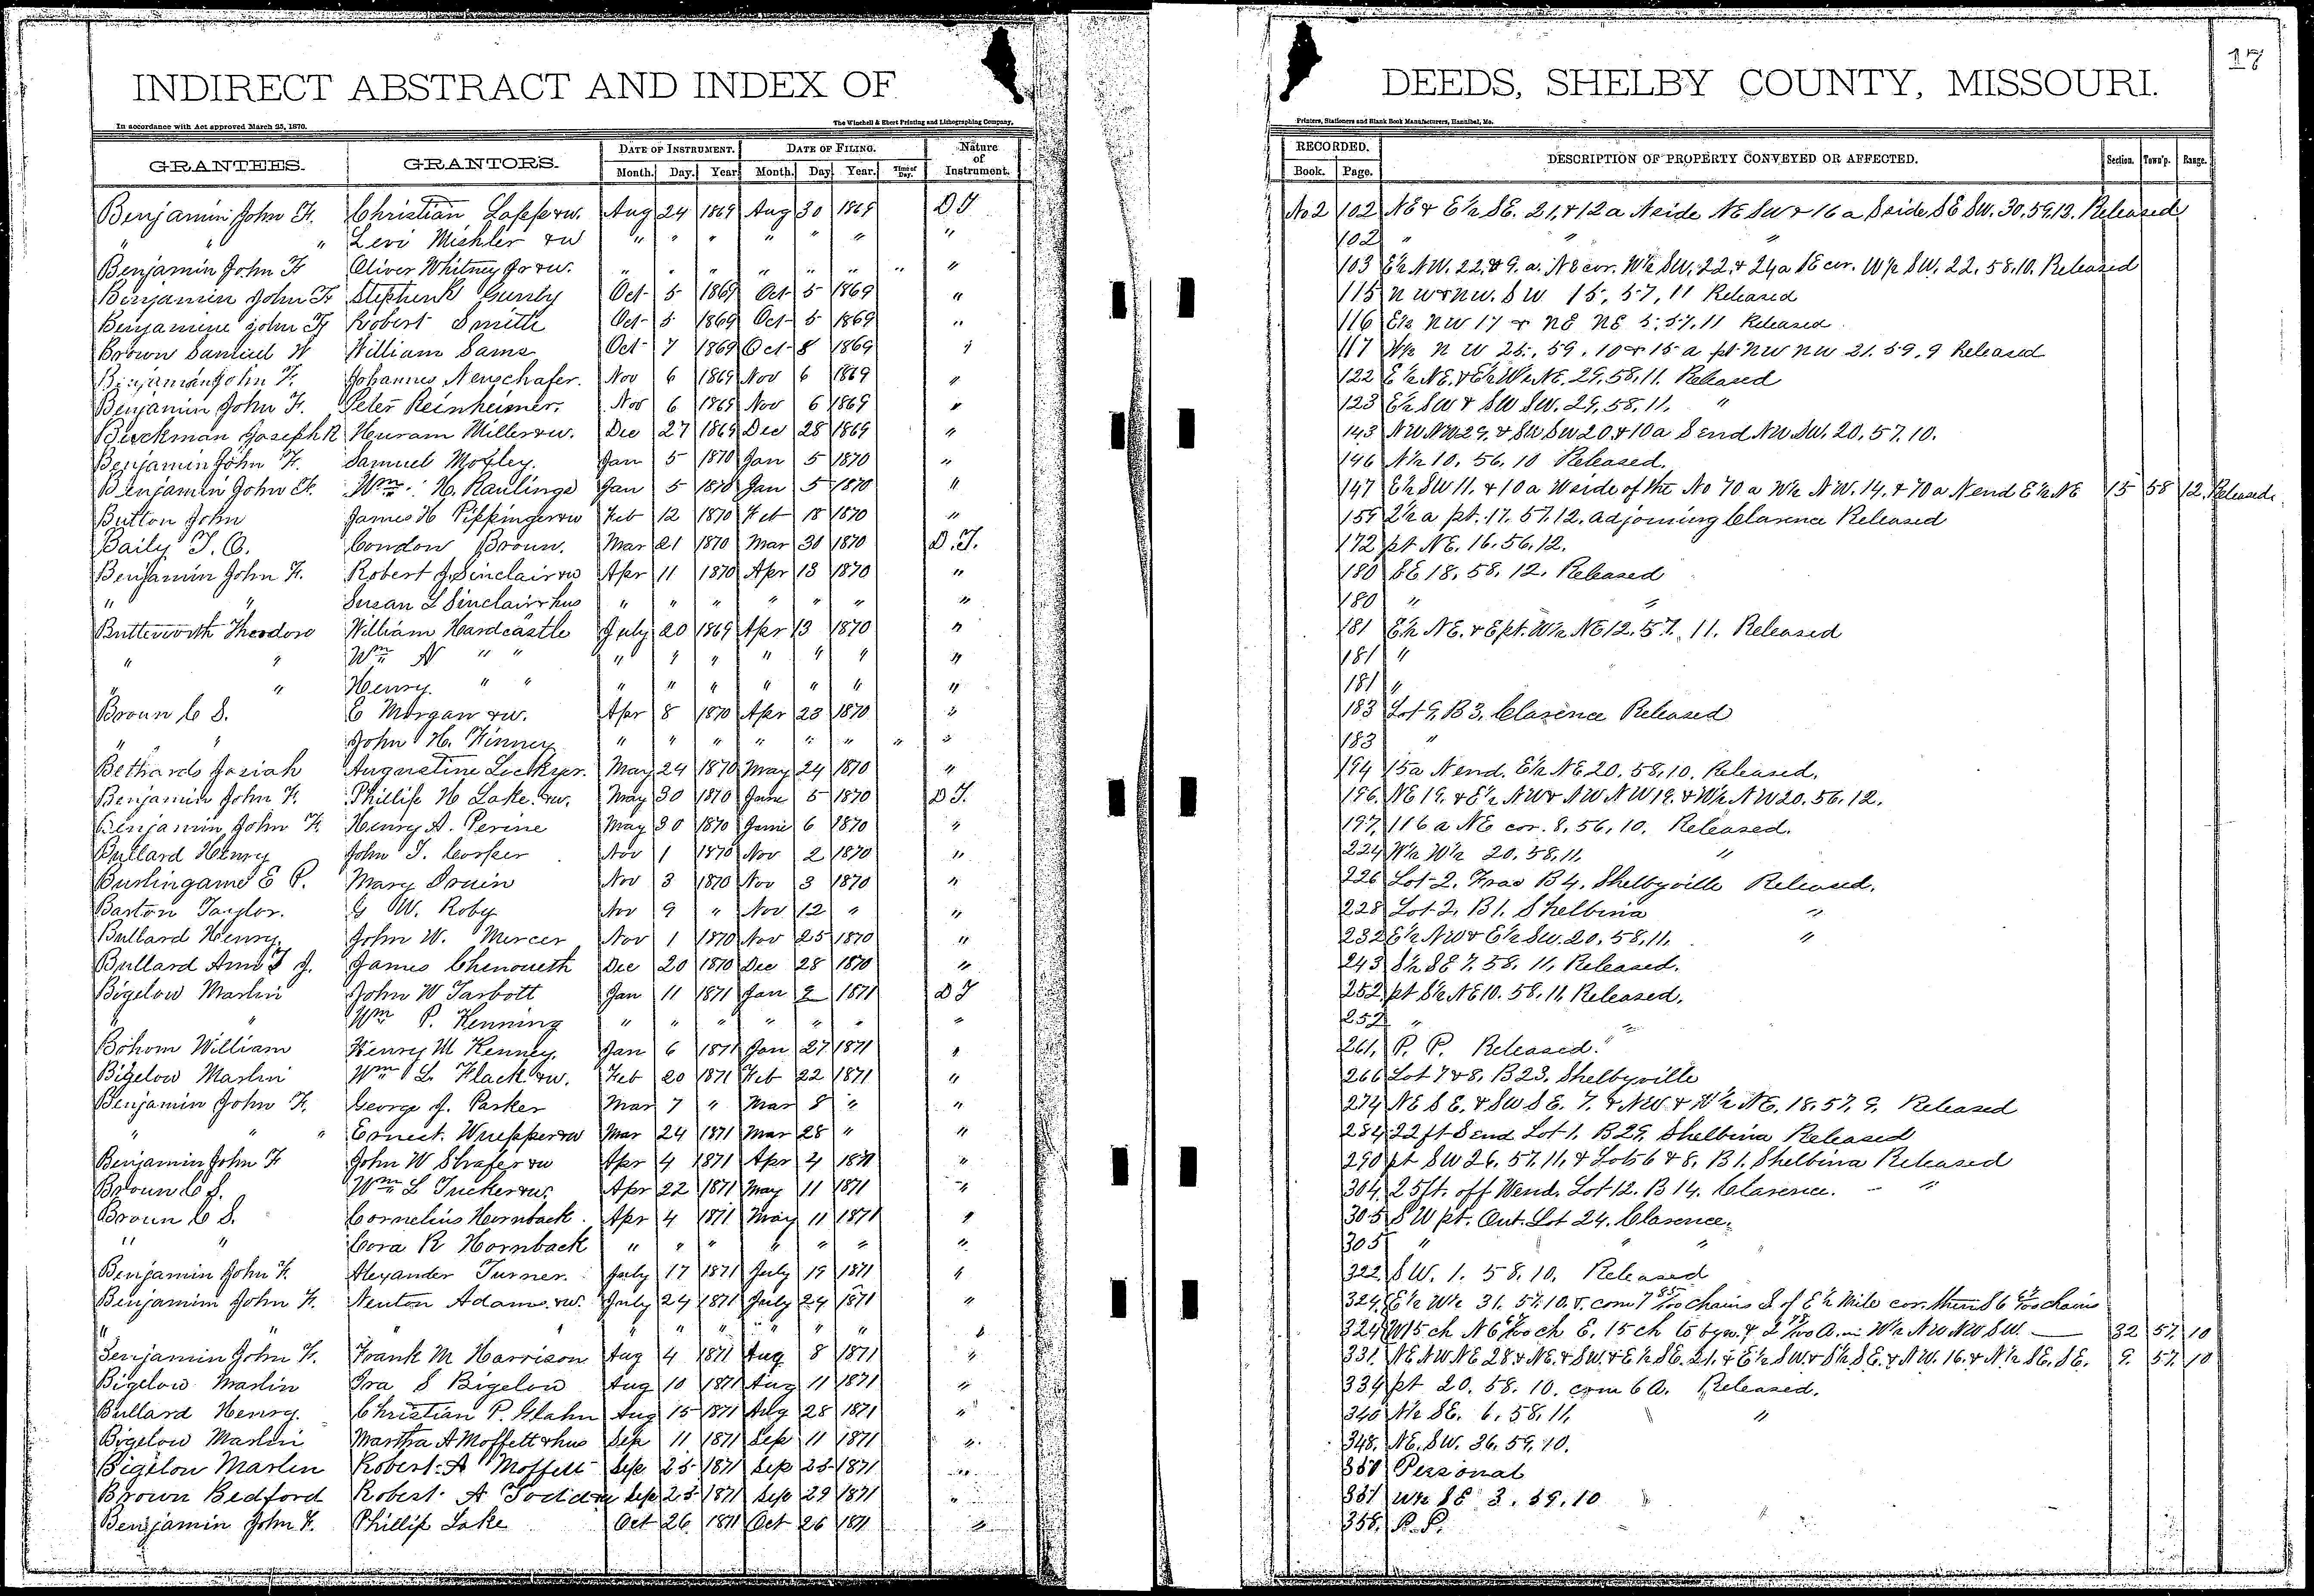 17
INDIRECT ABSTRACT AND INDEX OF DEEDS, SHELBY COUNTY, MISSOURI.
In accordance with Act approved March 25, 1870. The Winchell & Ebert Printing and Lithographing Company, Printers, Stationers and Blank Book Manufacturers, Hannibal, Mo.
GRANTEES. GRANTORS. DATE OF INSTRUMENT. DATE OF FILING. Nature of Instrument. RECORDED. DESCRIPTION OF PROPERTY CONVEYED OR AFFECTED. Section. Town'p. Range.
Month. Day. Year. Month. Day. Year. Time of Day. Book. Page.
Benjamin John F. Christian Lapp &w. Aug 24 1869 Aug 30 1869 D T No 2 102 NE & E½ SE. 21, & 12 a N side NE SW & 16 a S side SE SW. 30. 59. 12. Released
" " " Levi Mishler &w " " " " " " " 102 " " "
Benjamin John F Oliver Whitney Jr &w. " " " " " " " " 103 E½ NW. 22. & 9. a. NE cor. W½ SW. 22. & 24 a SE cor. W½ SW. 22. 58. 10. Released
Benjamin John F Stephen R Gunby Oct 5 1869 Oct 5 1869 " 115 NW & NW. SW 15, 57, 11 Released
Benjamine John F Robert Smith Oct 5 1869 Oct 5 1869 " 116 E½ NW 17 & NE NE 5. 57. 11 Released
Brown Samuel W William Sams Oct 7 1869 Oct 8 1869 " 117 W½ NW 25, 59, 10 & 15 a pt NW NW 21. 59. 9 Released
Benjamin John F. Johannes Neuschafer. Nov 6 1869 Nov 6 1869 " 122 E½ NE. & E½ W½ NE. 29, 58, 11. Released
Benjamin John F. Peter Reinheimer. Nov 6 1869 Nov 6 1869 " 123 E½ SW & SW SW. 29, 58, 11. "
Beuckman Joseph R Huram Miller &w. Dec 27 1869 Dec 28 1869 " 143 NW NW 29, & SW SW 20, & 10 a S end NW SW. 20. 57. 10.
Benjamin John F. Samuel Motley. Jan 5 1870 Jan 5 1870 " 146 N½ 10. 56. 10 Released.
Benjamin John F. Wm. H. Raulings Jan 5 1870 Jan 5 1870 " 147 E½ SW 11. & 10 a W side of the No 70 a W½ NW. 14. & 70 a N end E½ NE 15 58 12. Released.
Button John James H Pippinger &w Feb 12 1870 Feb 18 1870 " 159 2½ a pt. 17. 57. 12. adjoining Clarence Released
Baily T. C. Condon Broun. Mar 21 1870 Mar 30 1870 D. T. 172 pt NE. 16. 56. 12.
Benjamin John F. Robert J. Sinclair &w Apr 11 1870 Apr 13 1870 " 180 SE 18. 58. 12. Released
" " Susan L Sinclair & hus " " " " " " " 180 " "
Butterworth Theodore William Hardcastle July 20 1869 Apr 13 1870 " 181 E½ NE. & E pt. W½ NE 12. 57. 11. Released
" " Wm N " " " " " " " " " 181 "
" " Henry. " " " " " " " " " 181 "
Broun C S. E Morgan &w. Apr 8 1870 Apr 23 1870 " 183 Lot 9, B 3, Clarence Released
" " John H. Finney " " " " " " " " 183 "
Bethards Josiah Augustine Lockyer. May 24 1870 May 24 1870 " 194 15 a N end. E½ NE 20. 58. 10. Released.
Benjamin John F. Phillip H Lake. &w. May 30 1870 June 5 1870 D T. 196. NE 19. & E½ NW & NW NW 19. & W½ NW 20. 56. 12.
Benjamin John F. Henry A. Perine May 30 1870 June 6 1870 " 197, 116 a NE cor. 8, 56, 10. Released.
Bullard Henry John T. Cooper Nov 1 1870 Nov 2 1870 " 224 W½ W½ 20. 58. 11. "
Burlingame E P. Mary Druin Nov 3 1870 Nov 3 1870 " 226 Lot 2. Frac B 4. Shelbyville Released.
Barton Taylor. G W. Roby Nov 9 " Nov 12 " " 228 Lot 2, B 1. Shelbina "
Bullard Henry. John W. Mercer Nov 1 1870 Nov 25 1870 " 232 E½ NW & E½ SW. 20. 58. 11. "
Bullard Ann T J. James Chenoueth Dec 20 1870 Dec 28 1870 " 243 S½ SE 7. 58. 11. Released.
Bigelow Marlin John W Tarbott Jan 11 1871 Jan 1871 D T 252 pt S½ NE 10. 58. 11. Released.
" " Wm P. Kenning " " " " " " " 252 " "
Bohom William Henry M Kenney. Jan 6 1871 Jan 27 1871 " 261, P. P. Released.
Bigelow Marlin Wm L. Flack &w. Feb 20 1871 Feb 22 1871 " 266 Lot 7 & 8, B 23. Shelbyville
Benjamin John F. George J. Parker Mar 7 " Mar 8 " " 274 NE SE. & SW SE. 7. & NW & W½ NE. 18. 57. 9. Released
" " " Ernest. Wuepper &w Mar 24 1871 Mar 28 " " 284 22 ft S end Lot 1. B 29, Shelbina Released
Benjamin John F John W Shafer &w Apr 4 1871 Apr 4 1871 " 290 pt SW 26. 57. 11, & Lots 6 & 8, B 1. Shelbina Released
Broun C S. Wm L Tucker &w. Apr 22 1871 May 11 1871 " 304. 25 ft. off W end. Lot 12. B 14. Clarence. "
Broun C S. Cornelius Hornback. Apr 4 1871 May 11 1871 " 305 SW pt. Out. Lot 24. Clarence.
" " Cora R Hornback " " " " " " " 305 " " "
Benjamin John F. Alexander Turner. July 17 1871 July 19 1871 " 322. SW. 1. 58. 10. Released
Benjamim John F. Neuton Adams. &w. July 24 1871 July 24 1871 " 324. E½ W½ 31. 57. 10. & com 7 85/100 chains S of E½ Mile cor. then S 6 chains
" " " " " " " " " " 324 W 15 ch N 6 ch E. 15 ch to bgn. & 2 A. in W½ NW NW SW. 32 57. 10
Benjamin John F. Frank M Harrison Aug 4 1871 Aug 8 1871 " 331. NE NW NE 28 & NE. & SW. & E½ SE. 21. & E½ SW. & S½ SE. & NW. 16. & N½ SE. SE. 9. 57. 10
Bigelow Marlin Ira S Bigelow Aug 10 1871 Aug 11 1871 " 334 pt 20. 58. 10. com 6 A. Released.
Bullard Henry. Christian P. Glahn Aug 15 1871 28 1871 " 340 N½ SE. 6. 58. 11. "
Bigelow Marlin Martha A Moffett & hus Sep 11 1871 Sep 11 1871 " 348. NE. SW. 36. 59. 10.
Bigelow Marlin Robert A Moffett Sep 25 1871 Sep 25 1871 " Personal
Brown Bedford Robert A Sep 25 1871 Sep 29 1871 " W½ SE 3. 59. 10
Benjamin John F. Phillip Lake Oct 26. 1871 Oct 26 1871 " 358. P. P.